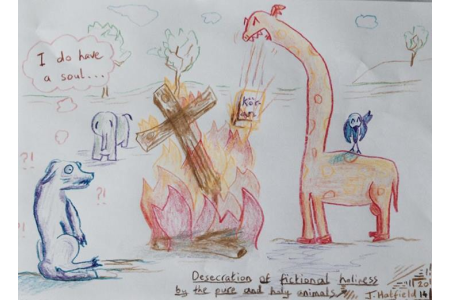 I do have
a soul...
?!
?!
Kor
an
Desecration of fictional holiness
by the pure and holy animals
20
Hatfield 14